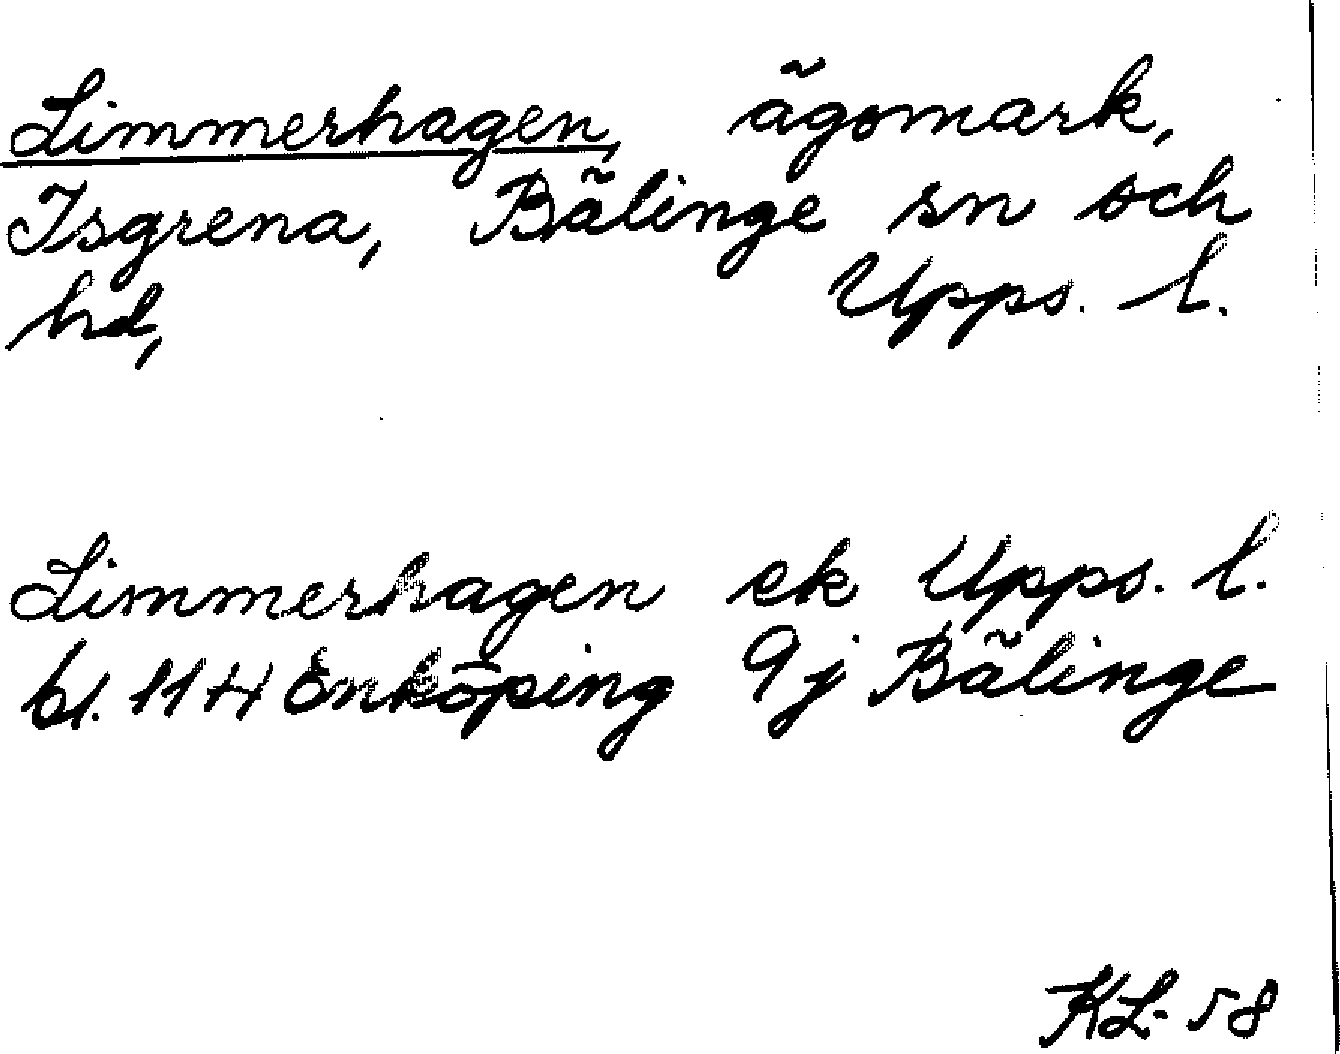 Limmerhagen, ägomark,
Isgrena, Bälinge sn och
hd, Upps. l.
Limmerhagen ek Upps. l.
bl. 11 H Enköping 9j Bälinge
KL-58